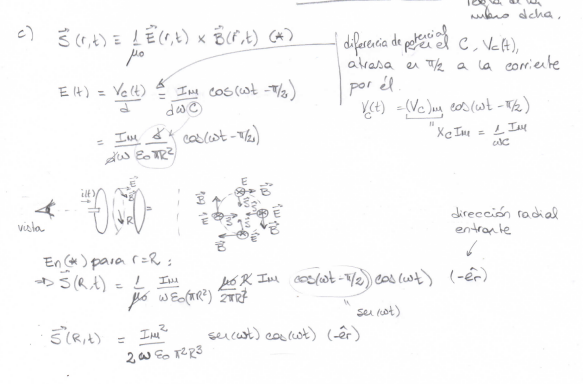 regla de la
mano dcha.
c) S⃗(r,t) = 1/μ₀ E⃗(r,t) × B⃗(r,t) (*)
diferencia de potencial en el C, Vc(t),
atrasa en π/2 a la corriente
por él.
Vc(t) = (Vc)m cos(ωt - π/2)
" Xc Im = 1/ωC Im
E(t) = Vc(t)/d = Im/dωC cos(ωt - π/2)
= Im/dω d/ε₀πR² cos(ωt - π/2)
i(t) E⃗ B⃗ R =
vista
E B⃗ S⃗ E⃗ B⃗
dirección radial
entrante
En (*) para r=R :
⇒ S⃗(R,t) = 1/μ₀ Im/ωε₀(πR²) μ₀R/2πR² Im cos(ωt - π/2) cos(ωt) (-êr)
" sen(ωt)
S⃗(R,t) = Im²/2ωε₀π²R³ sen(ωt) cos(ωt) (-êr)